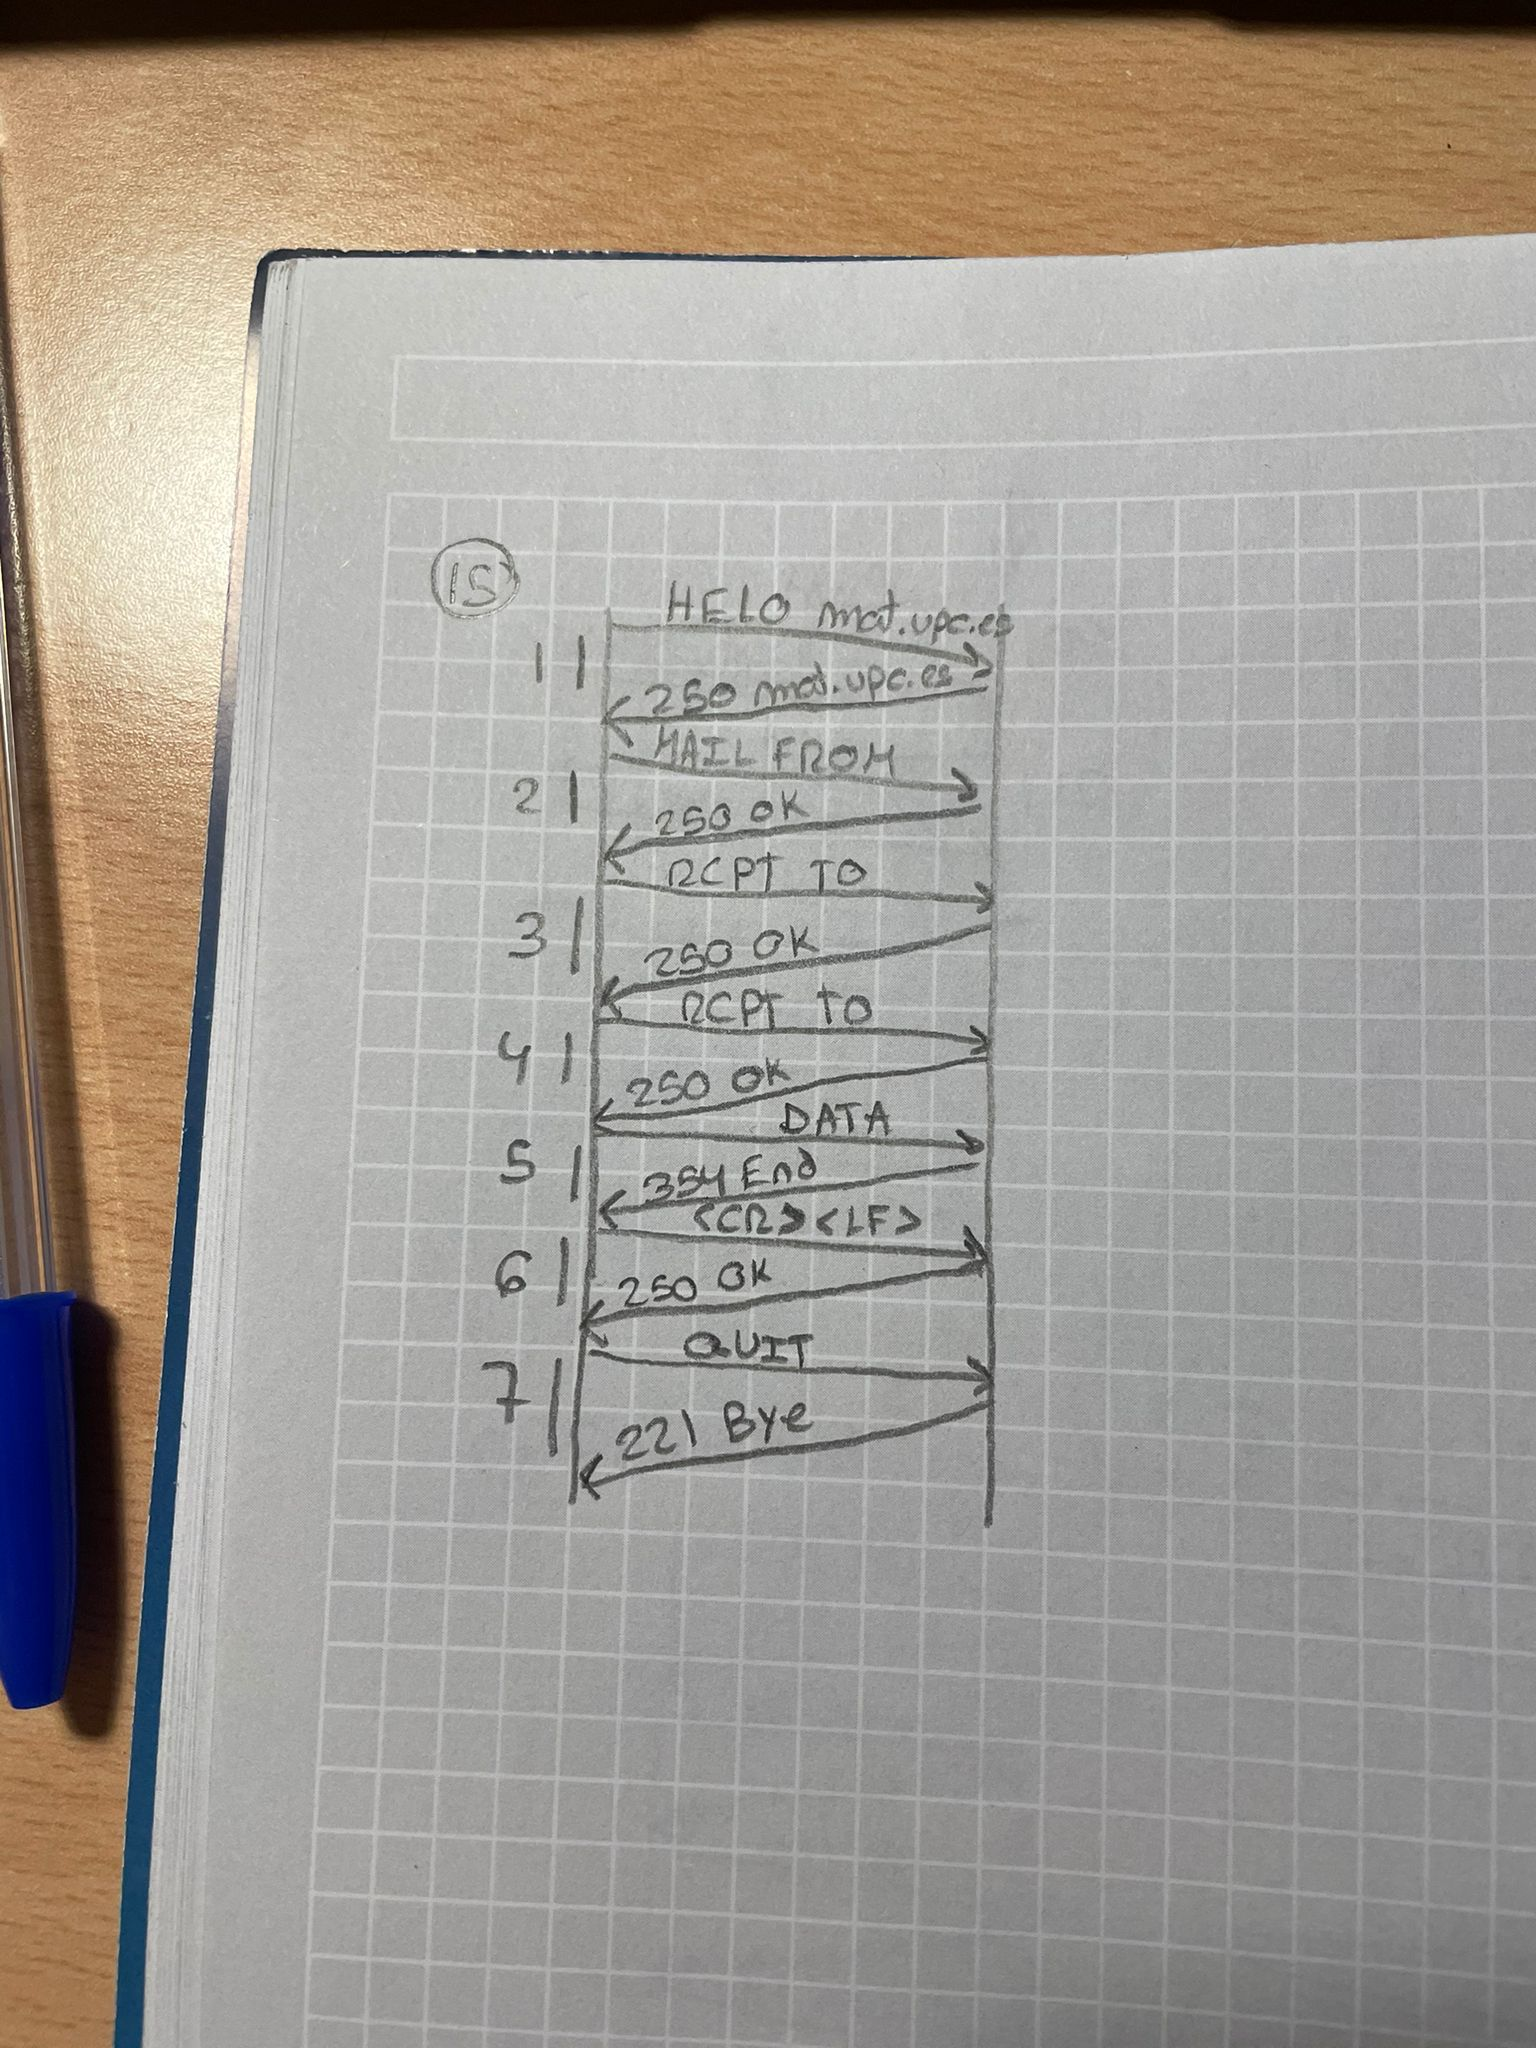 15
HELO mat.upc.es
1
250 mat.upc.es
MAIL FROM
2
250 OK
RCPT TO
3
250 OK
RCPT TO
4
250 OK
DATA
5
354 End
<CR><LF>
6
250 OK
QUIT
7
221 Bye